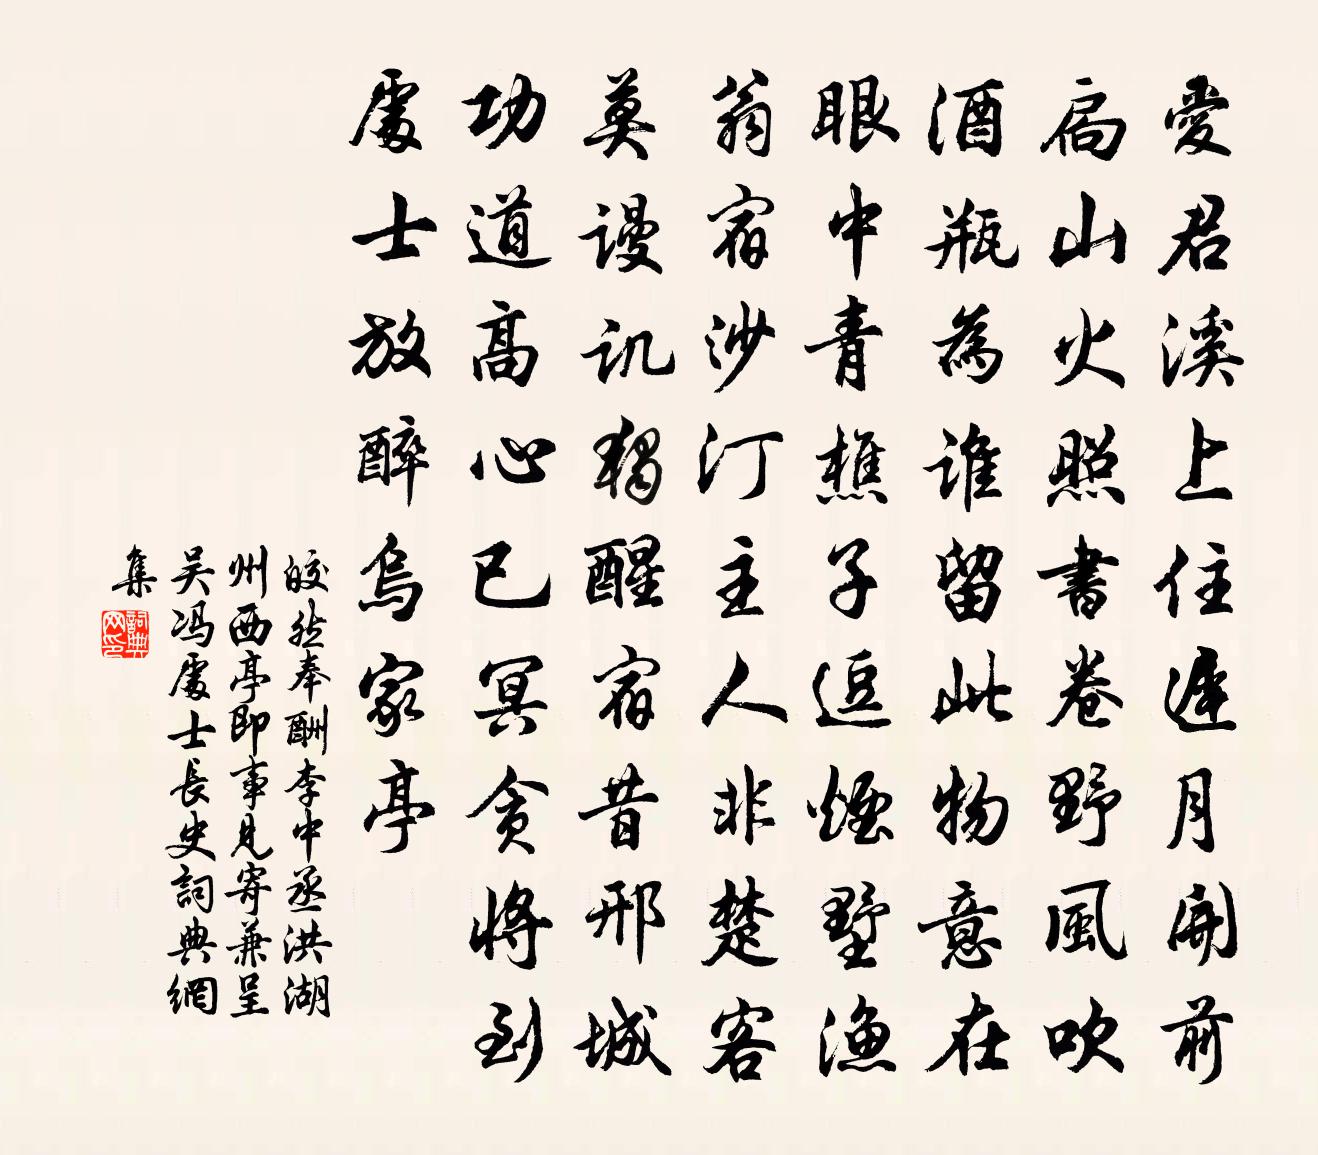 愛君溪上住遲月開前
扃山火照書卷野風吹
酒瓶為誰留此物意在
眼中青樵子逗煙墅漁
翁宿沙汀主人非楚客
莫謾譏獨醒宿昔邢城
功道高心已冥貪將到
處士放醉烏家亭
皎然奉酬李中丞洪湖
州西亭即事見寄兼呈
吴馮處士長史詞典網
集
詞典网印